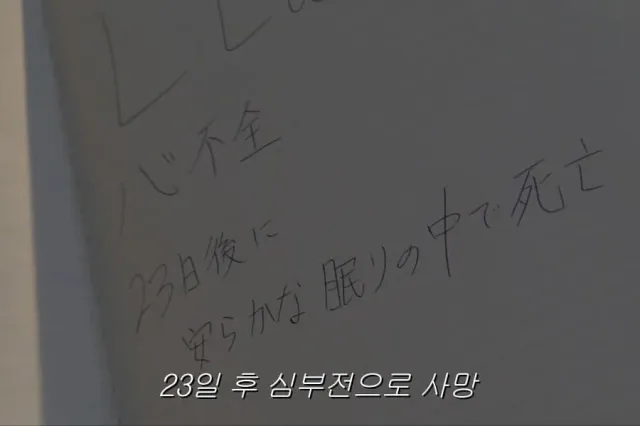 L La
心不全
23日後に
安らかな眠りの中で死亡
23일 후 심부전으로 사망